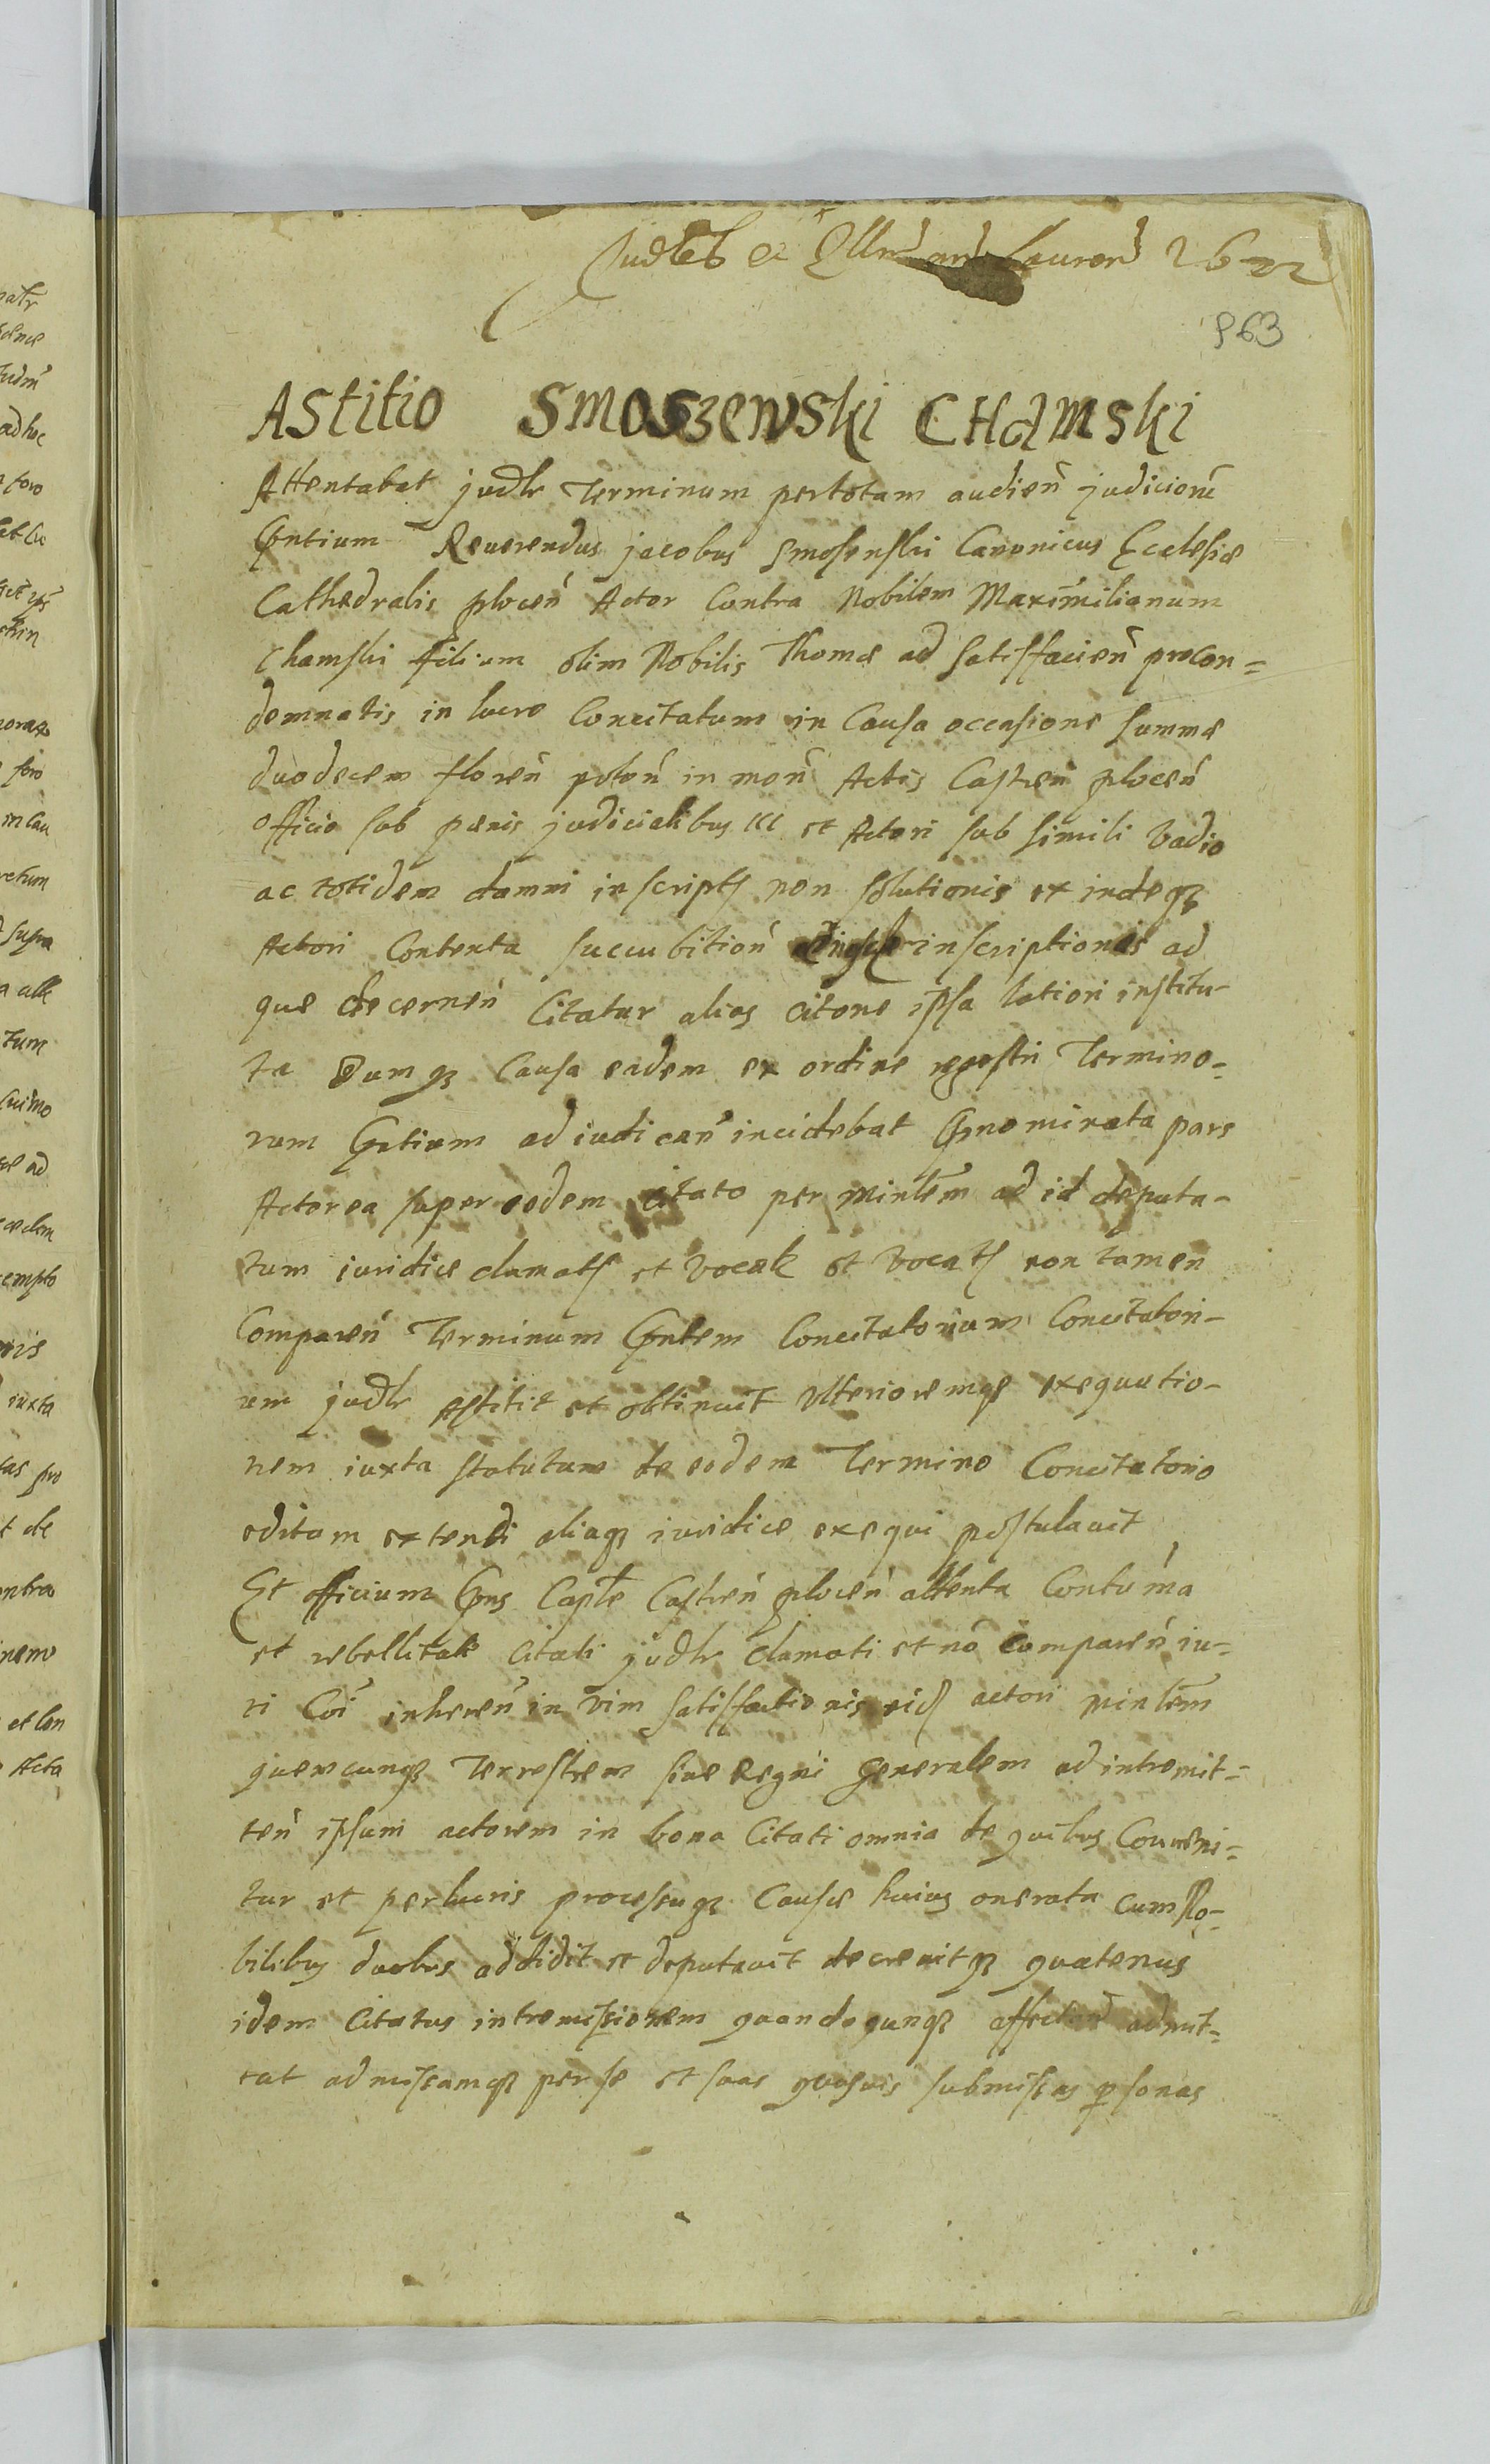 963
Astitio Smoszewski CHamski
Attentabat judlr Terminum pertotam audien judiciorũ
pntium Reuerendus jacobus Smosenski Canonicus Ecclesiæ
Cathedralis plocen Actor Contra Nobilem Maximilianum
Chamski filium olim Nobilis Thomæ ad satisfacien procon=
demnatis in lucro Concitatum in Causa occasione summæ
duodecem floren polon in mon Actis Castren plocen
officio sub pænis judicialibus et Actori sub simili vadio
ac totidem damni inscript non solutionis ex indeq
Actori Contenta succubition inscriptionis ad
quæ decernen Citatur alias citone ipsa latiori institu-
ta Dumq Causa eadem ex ordine regestri Termino-
rum pntium ad iudican incidebat pnominata pars
Actorea super eodem citato per minlem ad id deputa-
tum iuridice clamat et vocat non tamen
Comparen Terminum pntem Concitatorium Concitatori-
um judlr Astitit et obtinuit Vlterioremqe exequutio-
nem iuxta statutum de eodem Termino Concitatorio
editum extendi aliaq iuridice exequi postulauit
Et officium pns Caple Castren plocen attenta Contuma
et rebellitate Citati judlr clamati et nõ Comparen iu-
ri Coi inheren in vim satisfactionis eid actori minlem
quemcunq Terrestrem siue Regni Generalem ad intromit=
ten ipsum actorem in bona Citati omnia de quibus Conueni=
tur et perlucris processuq Causæ huius onerata cum No-
bilibus duobus addidit et deputauit decreuitq quatenus
idem Citatus intromissionem quandoqunq affectan admit=
tat admissamq per se et suas quasuis submissas psonas